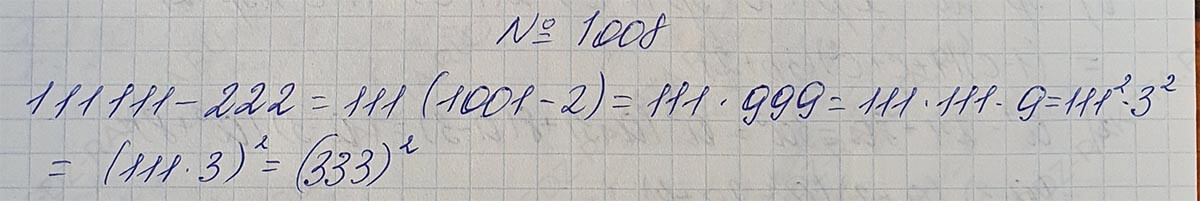 № 1008
111111 - 222 = 111 (1001 - 2) = 111 · 999 = 111 · 111 · 9 = 111² · 3²
= (111 · 3)² = (333)²